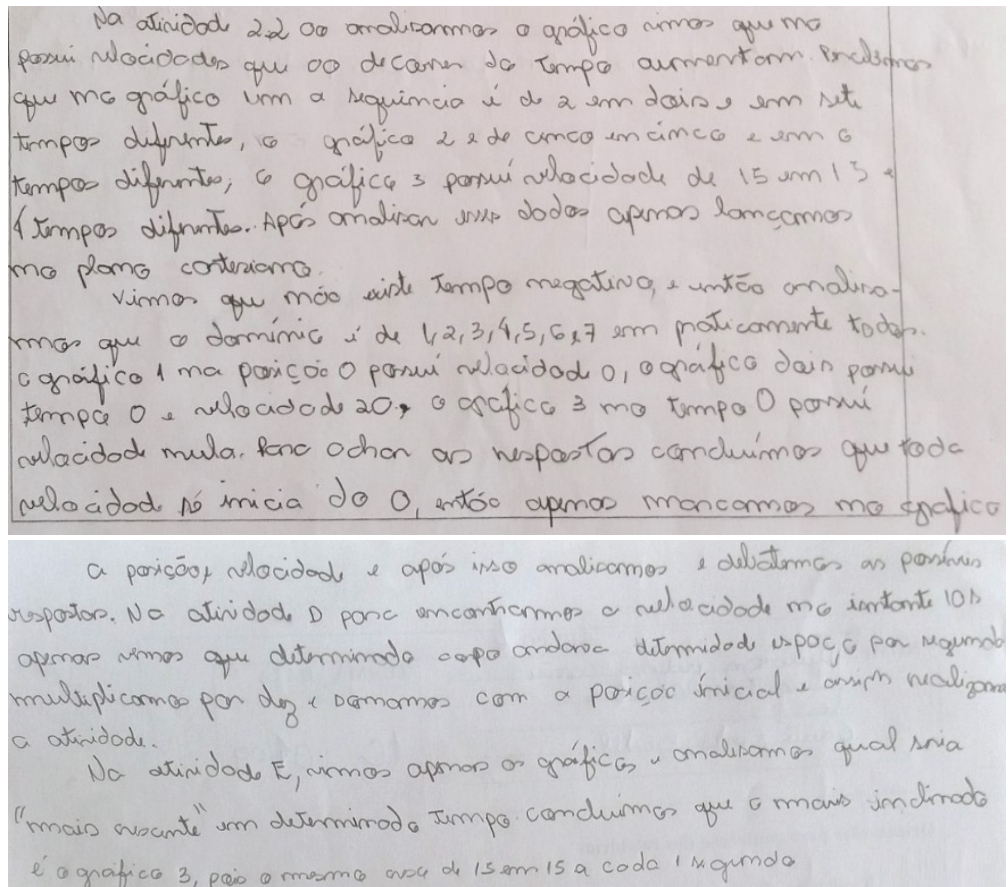 Na atividad 2.2 ao analisarmos o gráfico vimos que no
possui velocidades que ao decorrer do tempo aumentam. Percebemos
que no gráfico um a sequência é de 2 em dois e em sete
tempos diferentes, o gráfico 2 é de cinco em cinco e em 6
tempos diferentes; o gráfico 3 possui velocidade de 15 em 15 e
4 tempos diferentes. Após analisar esses dados apenas lançamos
no plano cartesiano.
Vimos que não existe tempo negativo, e então analisa-
mos que o domínio é de 1, 2, 3, 4, 5, 6 e 7 em praticamente todos.
O gráfico 1 na posição 0 possui velocidad 0, o gráfico dois possui
tempo 0 e velocidade 20, o gráfico 3 no tempo 0 possui
velocidad nula. Para achar as respostas concluímos que toda
velocidad só inicia do 0, então apenas marcamos no gráfico
a posição, velocidade e após isso analisamos e debatemos as possíveis
respostas. Na atividade D para encontrarmos a velocidade no instante 10s
apenas vimos que determinado corpo andava determidade espaço por segundo
multiplicamos por dez e somamos com a posição inicial e assim realizamos
a atividade.
Na atividade E, vimos apenas os gráficos e analisamos qual seria
"mais" em determinado tempo concluímos que o mais inclinado
é o gráfico 3, pois o mesmo de 15 em 15 a cada 1 segundo